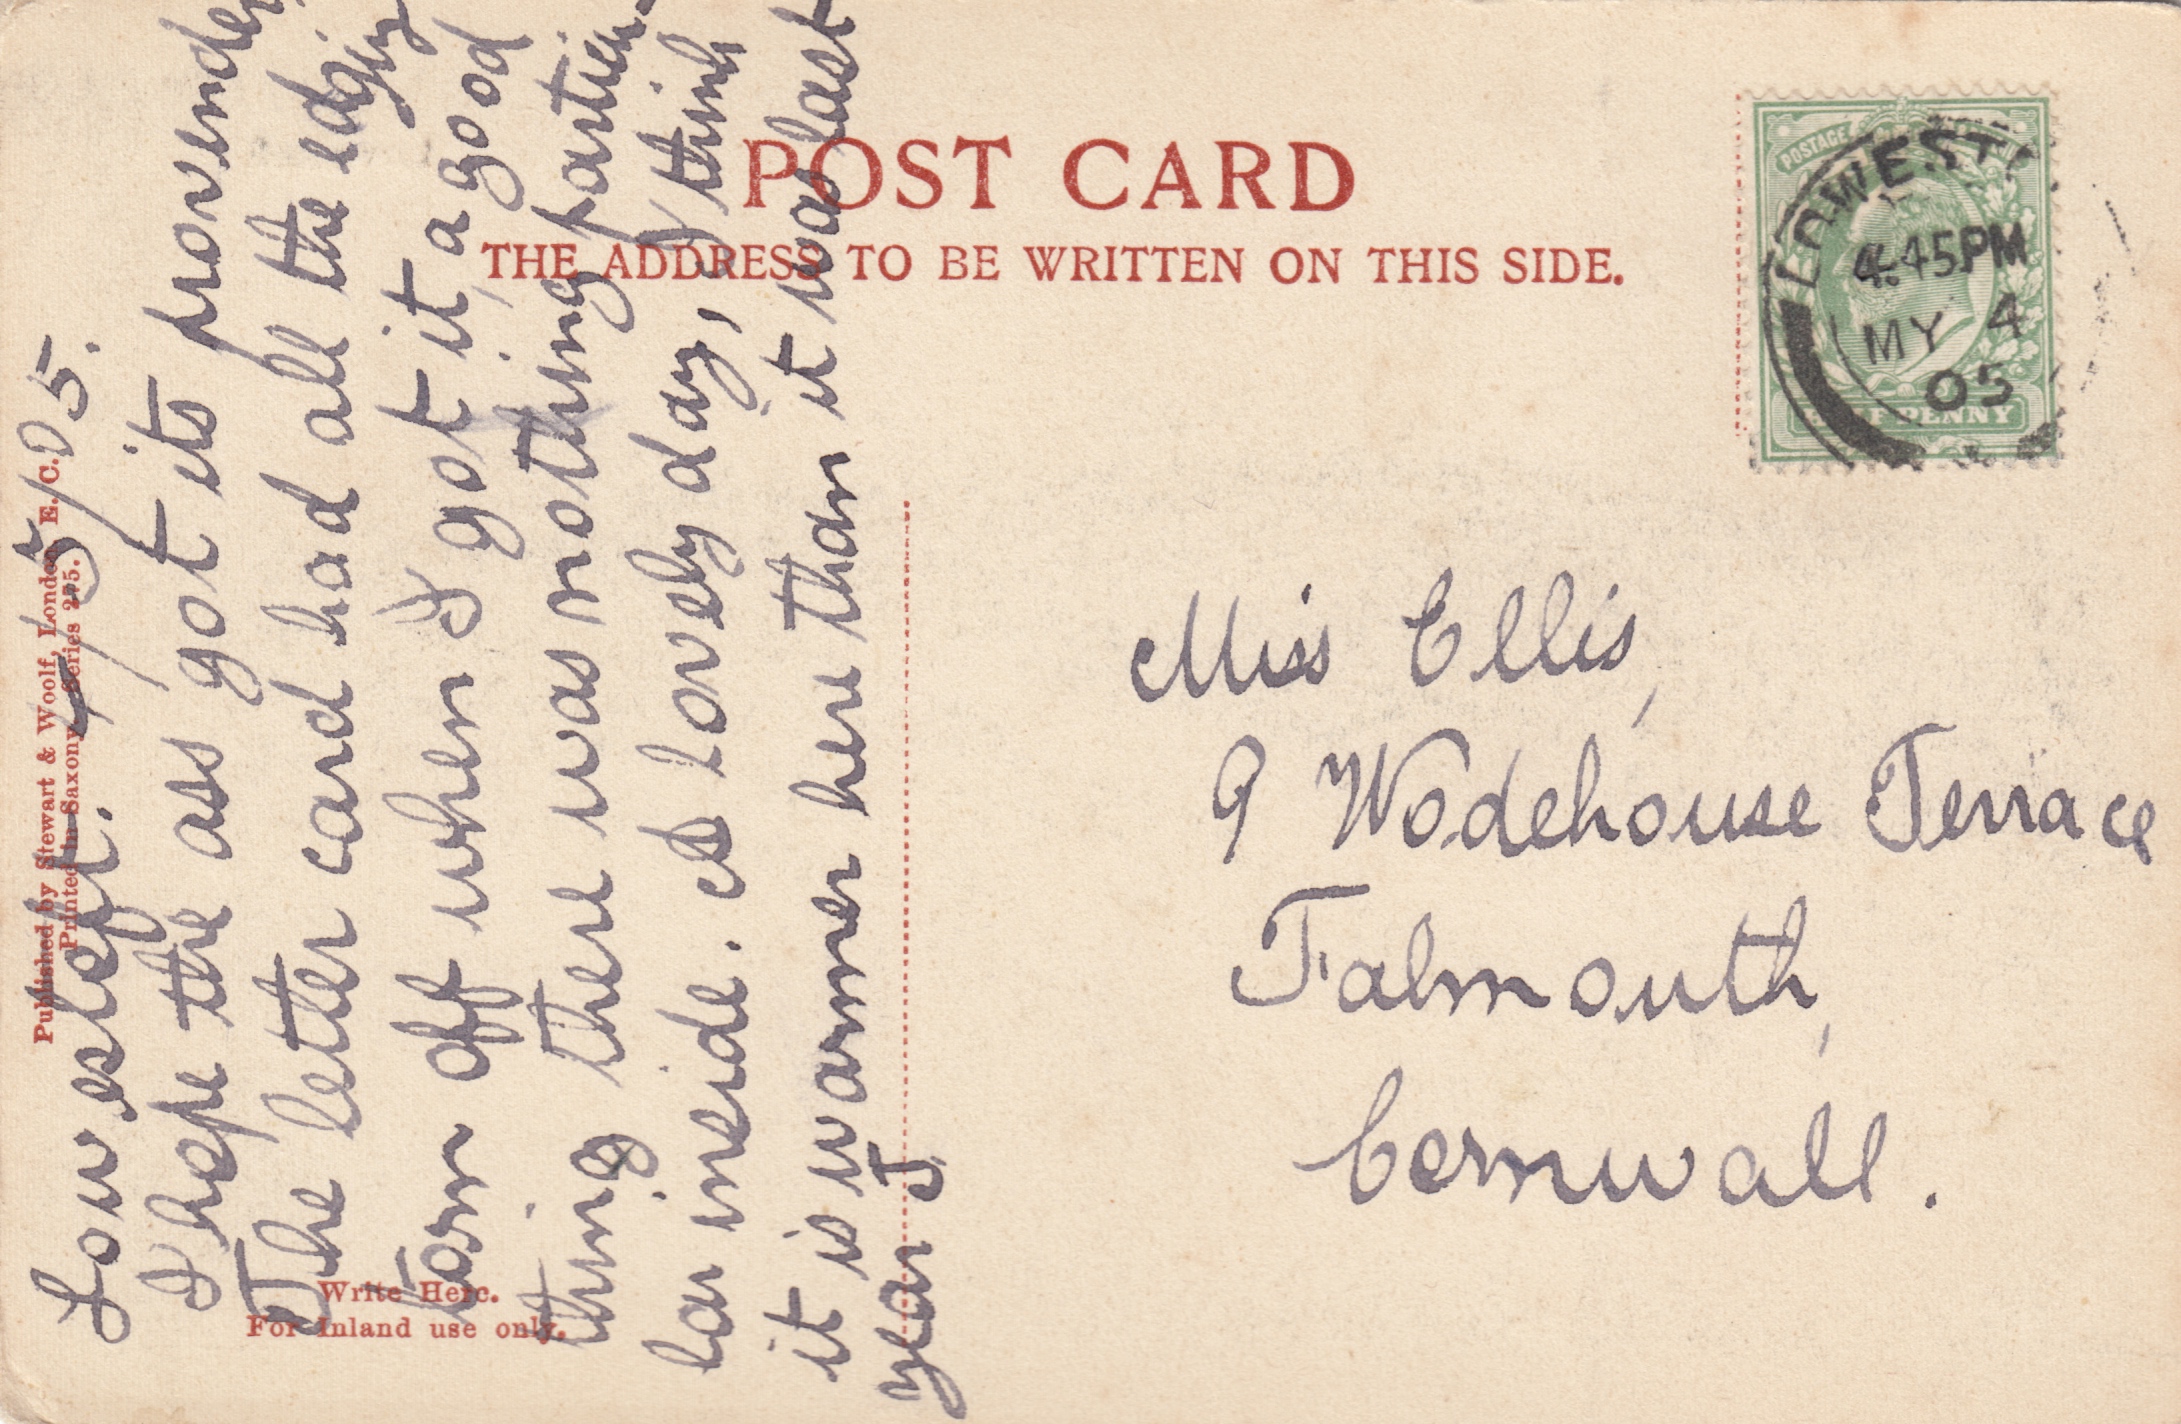 POST CARD
THE ADDRESS TO BE WRITTEN ON THIS SIDE.
LOWEST
4.45PM
MY 4
05
POSTAGE
HALFPENNY
Published by Stewart & Woolf, London E.C.
Printed in Saxony. Series 255.
Write Here.
For Inland use only.
Lowestoft. 4/5/05.
I hope the ass got its provender
The letter card had all the edging
torn off when I got it, a good
thing there was nothing particu-
lar inside. A lovely day, I think
it is warmer here than it was last
year J
Miss Ellis,
9 Wodehouse Terrace
Falmouth,
Cornwall.